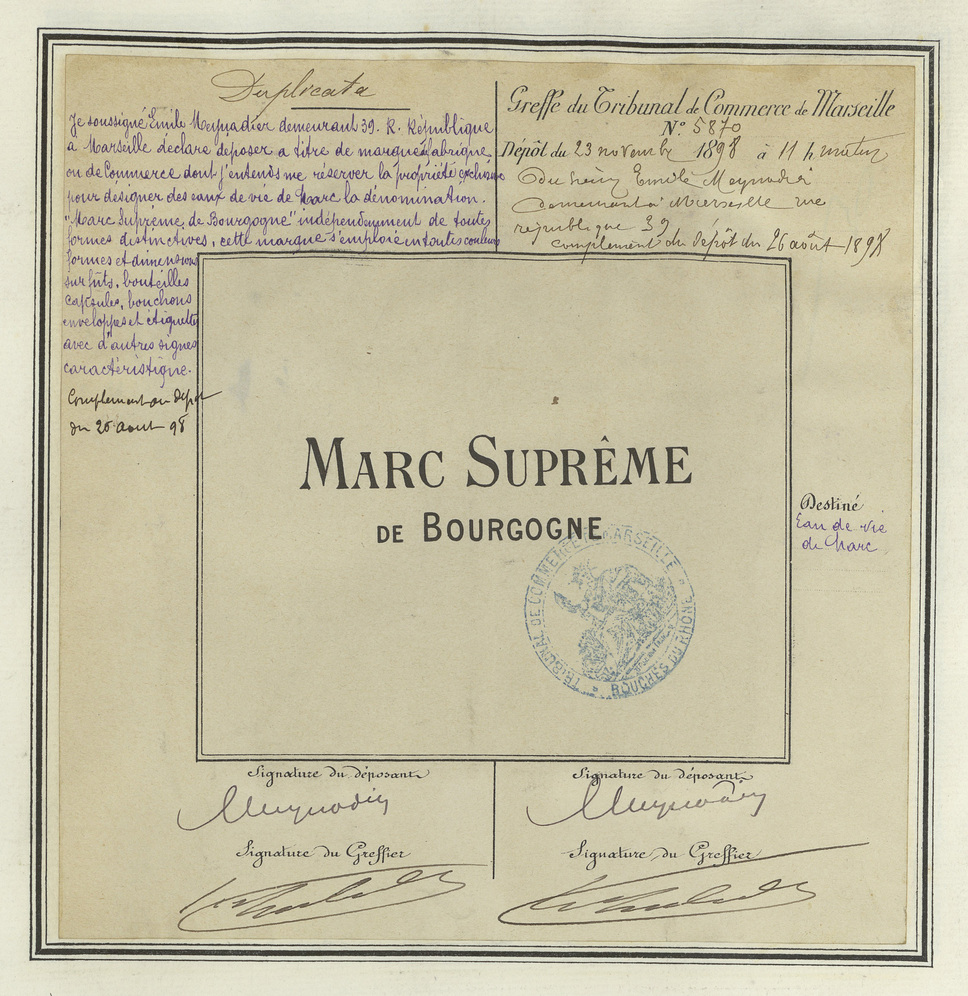 Duplicata
Je soussigné Émile Meynadier demeurant 39. R. République
a Marseille déclare déposer a titre de marque fabrique
ou de Commerce dont j'entends me réserver la propriété exclusive
pour désigner des eaux de vie de Marc la dénomination.
"Marc Suprême de Bourgogne" indépendamment de toutes
formes distinctives, cette marque s'emploie en toutes couleurs
formes et dimensions
sur fûts, bouteilles
capsules, bouchons
enveloppes et étiquettes
avec d'autres signes
caractéristique.
Complement au dépot
du 26 aout 98
Greffe du Tribunal de Commerce de Marseille
N° 5870
Dépôt du 23 novembre 1898 à 11 h matin
du sieur Emile Meynadier
demeurant à Marseille rue
république 39
complement du dépôt du 26 août 1898
MARC SUPRÊME
DE BOURGOGNE
TRIBUNAL DE COMMERCE DE MARSEILLE
BOUCHES DU RHÔNE
Destiné
Eau de vie
de Marc
Signature du déposant
Meynadier
Signature du déposant
Meynadier
Signature du Greffier
Signature du Greffier